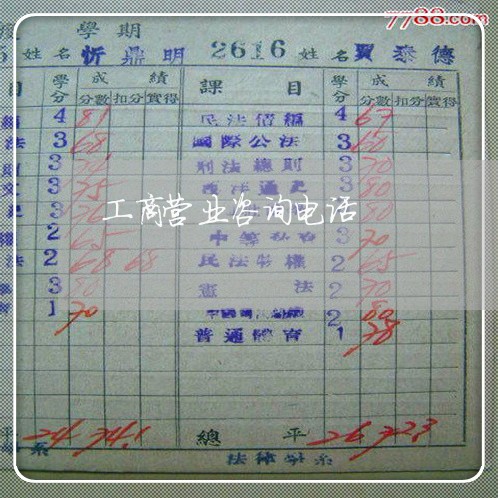 7788.com
學期
姓名 忻鼎明 2616 姓名 賈泰德
目 學分 成績 課目 學分 成績
分數 扣分 實得 分數 扣分 實得
4 81 民法債編 4 67
法 3 68 國際公法 3 60
3 刑法總則 3 70
文 3 75 3 80
史 3 76 3 80
工商营业咨询电话
權 2 65 3 70
法 2 68 68 民法物權 2 65
3 80 憲法 2 70
育 1 70 2 80
普通體育 1 78
平 24 74.1 總平 26 72.3
系 法律學系